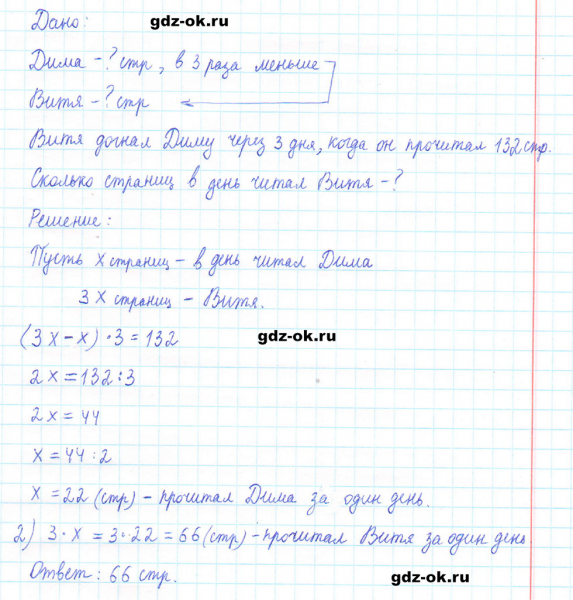 Дано:
gdz-ok.ru
Дима - ? стр, в 3 раза меньше
Витя - ? стр
Витя догнал Диму через 3 дня, когда он прочитал 132 стр.
Сколько страниц в день читал Витя - ?
Решение:
gdz-ok.ru
Пусть x страниц - в день читал Дима
3x страниц - Витя.
(3x - x) · 3 = 132
gdz-ok.ru
2x = 132 : 3
2x = 44
x = 44 : 2
x = 22 (стр) - прочитал Дима за один день.
2) 3 · x = 3 · 22 = 66 (стр) - прочитал Витя за один день
Ответ: 66 стр.
gdz-ok.ru